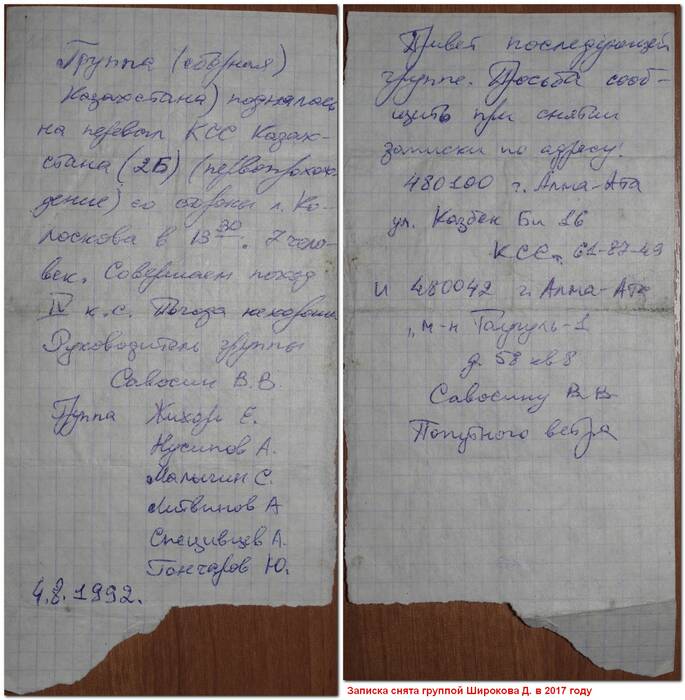 Группа (сборная)
Казахстана) поднялась
на перевал КСС Казах-
стана (2Б) (первопрохож-
дение) со стороны л. Ко-
лоскова в 13 30. 7 чело-
век. Совершаем поход
IV к.с. Погода нехорошая
Руководитель группы
Савосин В.В.
Группа Жихарь Е.
Нусипов А.
Малыгин С.
Литвинов А
Спешивцев А.
Гончаров Ю.
4.8.1992.
Привет последующей
группе. Просьба сооб-
щить при снятии
записки по адресу:
480100 г. Алма-Ата
ул. Казбек Би 26
КСС т. 61-87-49
и 480042 г. Алма-Ата
м-н Таугуль-1
д. 58 кв 8
Савосину В В
Попутного ветра
Записка снята группой Широкова Д. в 2017 году